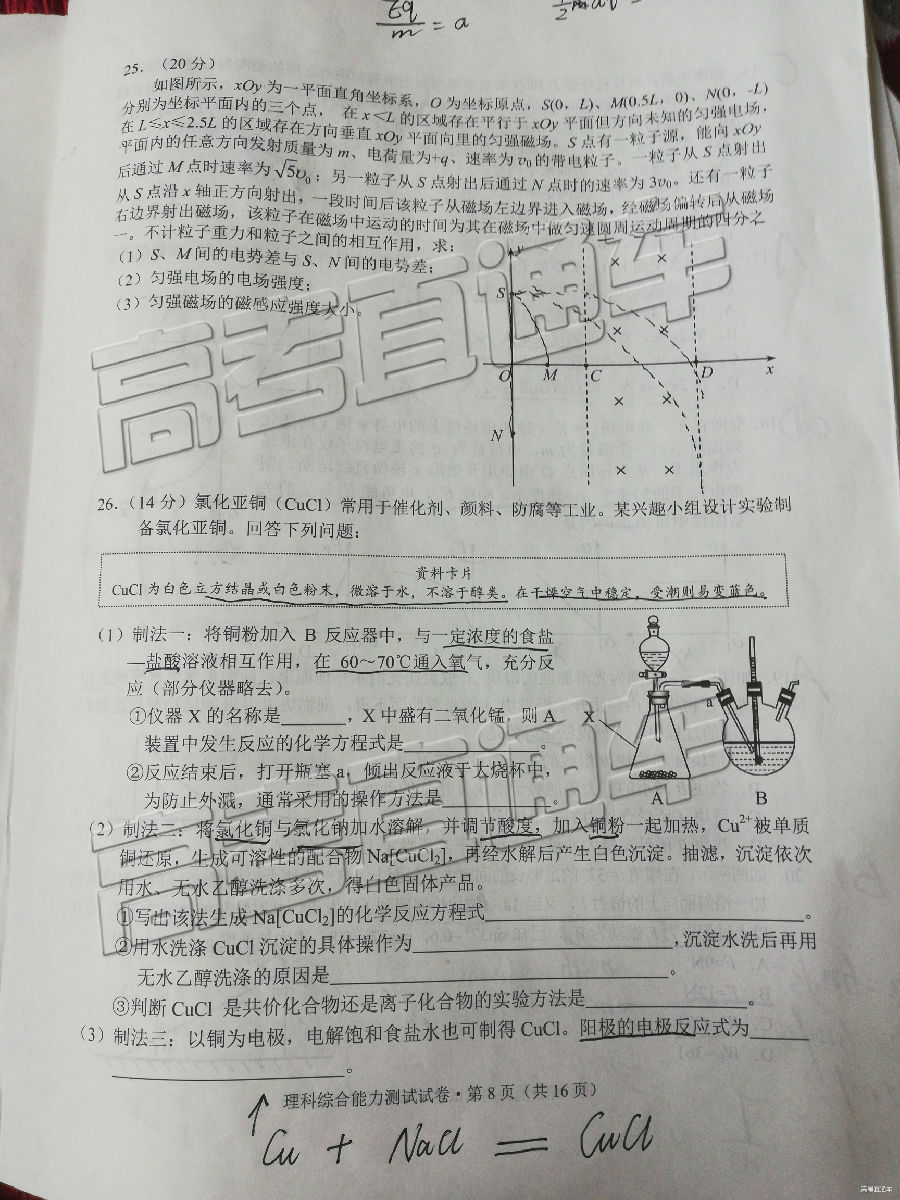 Eq/m = a
25.（20分）
如图所示，xOy为一平面直角坐标系，O为坐标原点，S(0，L)、M(0.5L，0)、N(0，-L)
分别为坐标平面内的三个点， 在x＜L的区域存在平行于xOy平面但方向未知的匀强电场，
在L≤x≤2.5L的区域存在方向垂直xOy平面向里的匀强磁场。S点有一粒子源，能向xOy
平面内的任意方向发射质量为m、电荷量为+q、速率为υ₀的带电粒子。一粒子从S点射出
后通过M点时速率为√5υ₀；另一粒子从S点射出后通过N点时的速率为3υ₀。还有一粒子
从S点沿x轴正方向射出，一段时间后该粒子从磁场左边界进入磁场，经磁场偏转后从磁场
右边界射出磁场，该粒子在磁场中运动的时间为其在磁场中做匀速圆周运动周期的四分之
一。不计粒子重力和粒子之间的相互作用，求：
（1）S、M间的电势差与S、N间的电势差；
（2）匀强电场的电场强度；
（3）匀强磁场的磁感应强度大小。
y
S
O M C D x
N
26.（14分）氯化亚铜（CuCl）常用于催化剂、颜料、防腐等工业。某兴趣小组设计实验制
备氯化亚铜。回答下列问题：
资料卡片
CuCl为白色立方结晶或白色粉末，微溶于水，不溶于醇类。在干燥空气中稳定，受潮则易变蓝色。
（1）制法一：将铜粉加入 B 反应器中，与一定浓度的食盐
—盐酸溶液相互作用，在 60～70℃通入氧气，充分反
应（部分仪器略去）。
①仪器X的名称是______，X中盛有二氧化锰，则A
装置中发生反应的化学方程式是____________。
②反应结束后，打开瓶塞a，倾出反应液于大烧杯中，
为防止外溅，通常采用的操作方法是__________。
X a
A B
（2）制法二：将氯化铜与氯化钠加水溶解，并调节酸度，加入铜粉一起加热，Cu²⁺被单质
铜还原，生成可溶性的配合物Na[CuCl₂]，再经水解后产生白色沉淀。抽滤，沉淀依次
用水、无水乙醇洗涤多次，得白色固体产品。
①写出该法生成Na[CuCl₂]的化学反应方程式____________________________。
②用水洗涤CuCl沉淀的具体操作为______________________，沉淀水洗后再用
无水乙醇洗涤的原因是____________________________。
③判断CuCl 是共价化合物还是离子化合物的实验方法是______________。
（3）制法三：以铜为电极，电解饱和食盐水也可制得CuCl。阳极的电极反应式为_____
____________________。
理科综合能力测试试卷·第8页（共16页）
Cu + NaCl = CuCl
高考直通车
高考直通车
高考直通车